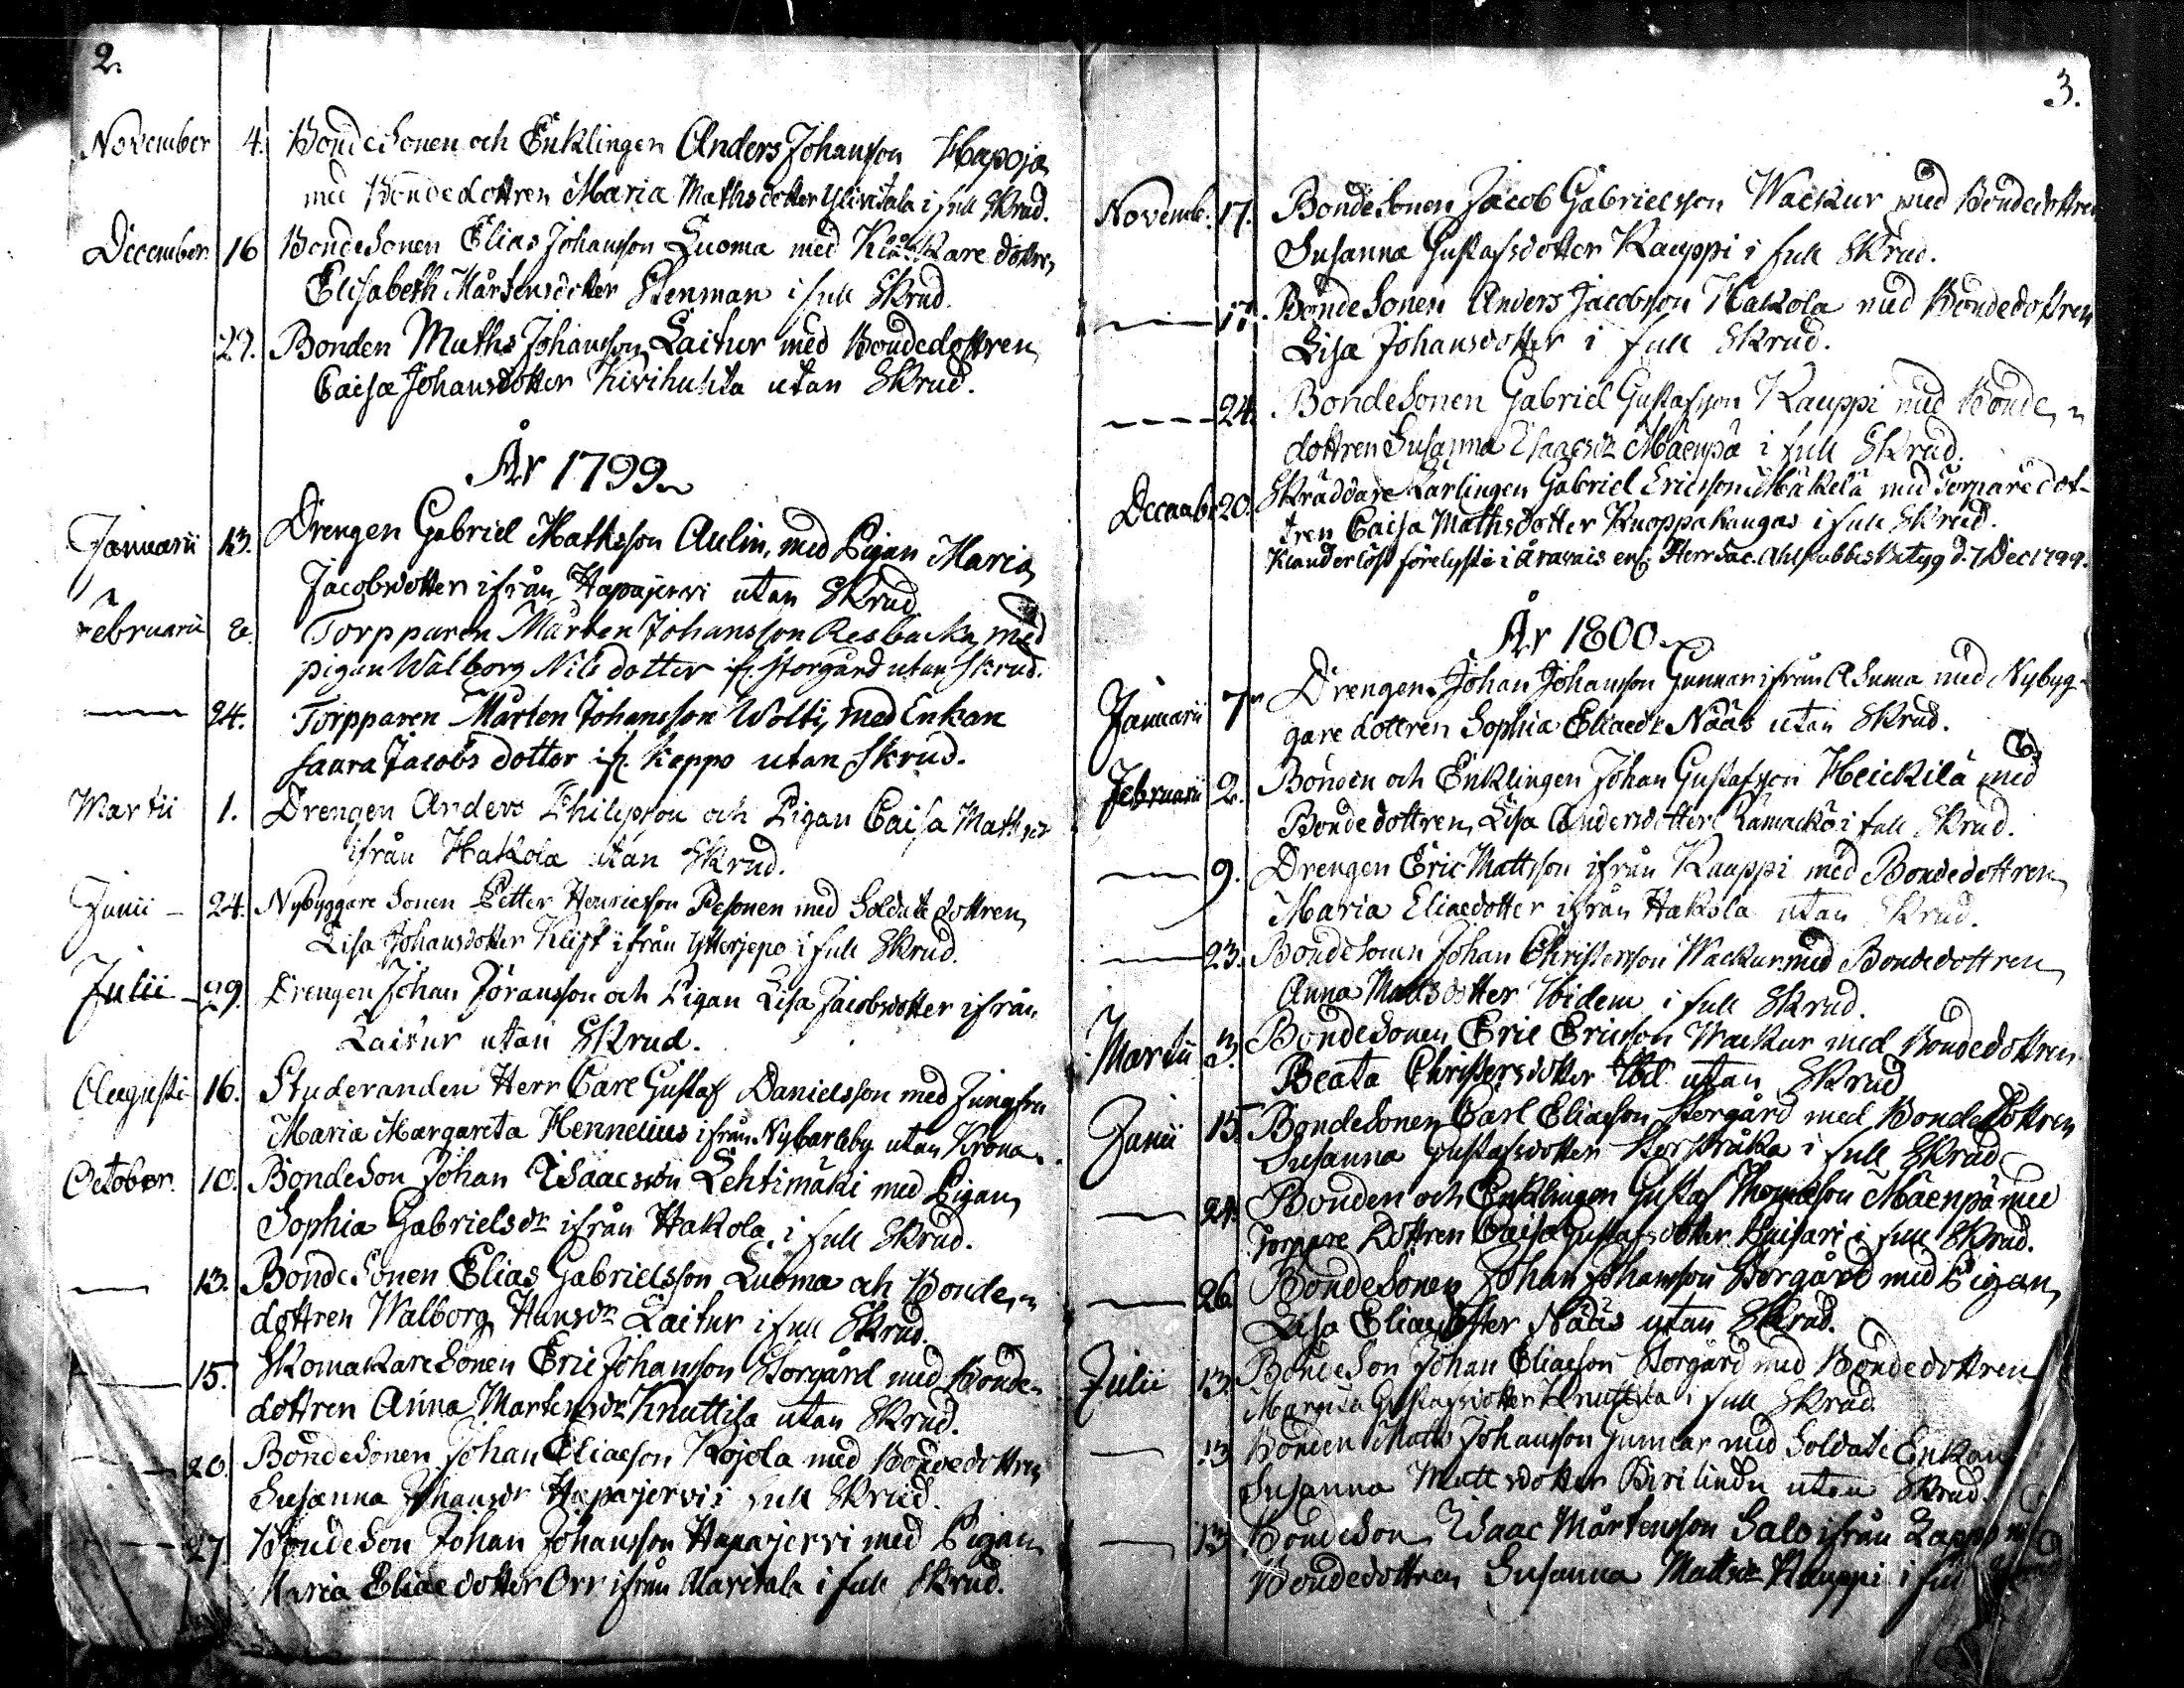 2.
November 4. Bondesonen och Enklingen Anders Johansson Hapoja
med Bondedottren Maria Mathsdotter Ylivitala i full Skrud.
December 16 Bondesonen Elias Johansson Luoma med dottren
Elisabeth Mårtensdotter Stenman i full Skrud.
27. Bonden Maths Johansson Laitur med Bondedottren
Caisa Johansdotter Kivihuhta utan Skrud.
År 1799
Januarii 13. Drengen Gabriel Mathsson Aulin, med Pigan Maria
Jacobsdotter ifrån Hapajerwi utan Skrud
Februarii 2. Torpparen Mårten Johansson Resbacka med
pigan Walborg Nilsdotter ifr. Storgård utan skrud.
24. Torpparen Mårten Johansson Wolti, med Enkan
Saara Jacobs dotter ifr. Keppo utan skrud.
Martii 1. Drengen Anders Philipsson och Pigan Caisa Mathsdr
ifrån Hakola utan Skrud.
Junii - 24. Nybyggare Sonen Petter Henricsson Pesonen med Soldate dottren
Lisa Johansdotter Klift ifrån Ytterjepo i full Skrud.
Julii - 29. Drengen Johan Jöransson och Pigan Lisa Jacobsdotter ifrån
Laitur utan Skrud.
Augusti 16. Studeranden Herr Carl Gustaf Danielsson med Jungfru
Maria Margareta Hennelius ifrån Nykarleby utan Krona.
October 10. Bondeson Johan Isaacsson Lehtimäki med Pigan
Sophia Gabrielsdr ifrån Hakola i full Skrud.
13. Bonde Sonen Elias Gabrielsson Luoma och Bonde
dottren Walborg Hansdr Laitur i full Skrud.
15. Skomakare Sonen Eric Johansson Storgård med Bonde
dottren Anna Mårtensdr Knuttila utan Skrud.
20. Bondesonen Johan Eliaesson Kojola med Bondedottren
Susanna Johansdr Hapajervi i full Skrud.
27. Bondeson Johan Johansson Hapajervi med Pigan
Maria Eliaedotter Orr ifrån Alavitala i full Skrud.
3.
Novemb. 17. Bondesonen Jacob Gabrielsson Wackur med Bondedottren
Susanna Gustafsdotter Kauppi i full Skrud.
17. Bondesonen Anders Jacobsson Hakola med Bondedottren
Lisa Johansdotter i full Skrud.
24. Bondesonen Gabriel Gustafsson Kauppi med Bonde
dottren Susanna Isaacsdr Mäenpä i full Skrud.
20. Skräddare Karlingen Gabriel Ericsson Mäkelä med Torparedot-
tren Caisa Mathsdotter Knoppakangas i full Skrud.
Klanderlöst förelyste i Oravais enl. Herr Sac. Betyg d. 7 Dec 1799.
År 1800
Januarii 7 Drengen Johan Johansson Gunnar ifrån med Nybyg-
gare dottren Sophia Eliaedr Nääs utan Skrud.
Februarii 2. Bonden och Enklingen Johan Gustafsson Heickilä med
Bondedottren Lisa Andersdotter i full Skrud.
9. Drengen Eric Mattsson ifrån Kauppi med Bondedottren
Maria Eliaedotter ifrån Hakola utan Skrud.
23. Bondesonen Johan Christersson Wackur med Bondedottren
Anna Mattsdotter Ibidem i full Skrud.
Martii 3. Bondesonen Eric Ericsson Wackur med Bondedottren
Beata Christersdotter Ibd. utan Skrud
Junii 15. Bondesonen Carl Eliaeson Storgård med Bondedottren
Susanna Gustafsdotter Storstråka i full Skrud
24. Bonden och Enklingen Gustaf Thomasson Mäenpä med
Torppare Dottren Caisa Gustafsdotter i full Skrud.
26. Bondesonen Johan Johansson Storgård med Pigan
Lisa Eliaedotter Nääs utan Skrud.
Julii 13. Bondeson Johan Eliaeson Storgård med Bondedottren
Margeta Gustafsdotter Knuttila i full Skrud.
13 Bonden Maths Johansson Gunnar med Soldate Enkan
Susanna Mattsdotter utan Skrud.
13 Bondeson Isaac Mårtensson Salo ifrån Lappo
Bondedottren Susanna Mattsdr Kauppi i full